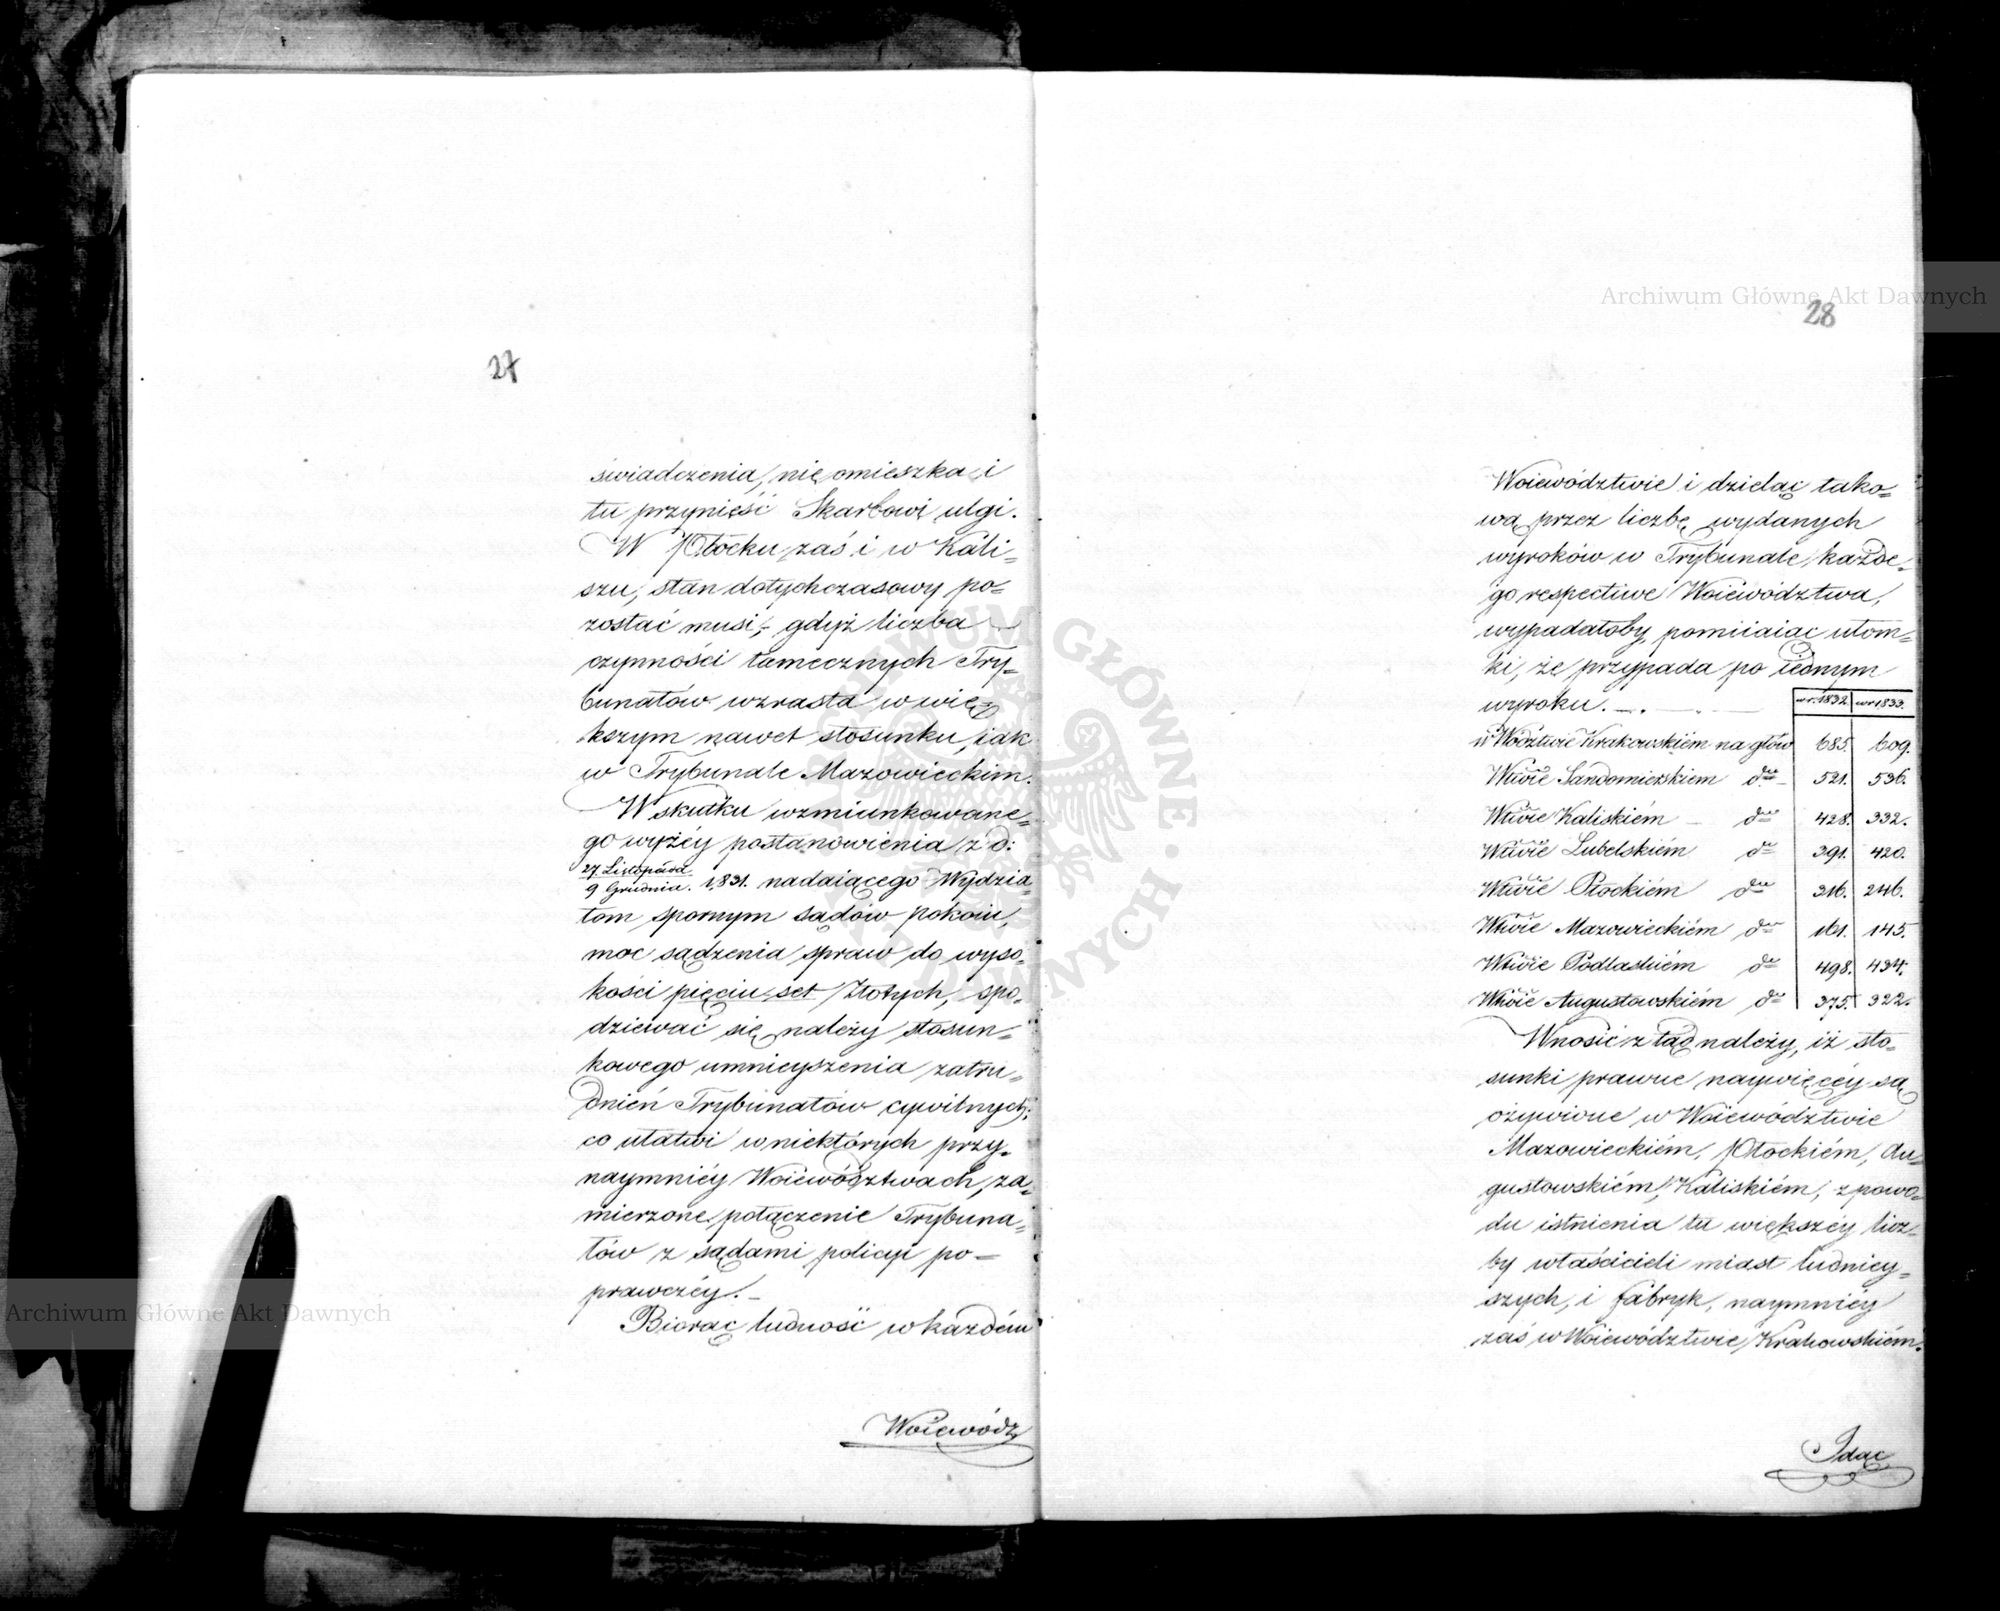 27
świadczenia, nie omieszka i
tu przynieść Skarbowi ulgi.
W Płocku zaś i w Kali=
szu, stan dotychczasowy po=
zostać musi, gdyż liczba
czynności tamecznych Try=
bunałów wzrasta w więk=
kszym nawet stosunku, iak
w Trybunale Mazowieckim.
W skutku wzmiunkowane=
go wyżéy postanowienia z d:
27 Listopada
9 Grudnia. 1831. nadaiącego Wydzia=
łom spornym sądów pokoiu,
moc sądzenia spraw do wyso=
kości pięciu set Złotych, spo=
dziewać się należy stosun=
kowego umnieyszenia zatru=
dnień Trybunałów cywilnych;
co ułatwi w niektórych przy=
naymniéy Woiewództwach, za=
mierzone połączenie Trybuna=
łów z sądami policyi po=
prawczéy.
Biorąc ludność w każdém
Woiewódz
28
Woiewództwie i dzieląc tako=
wą przez liczbę wydanych
wyroków w Trybunale każde=
go respective Woiewództwa,
wypadałoby, pomiiaiąc ułom=
ki, że przypada po iednym
wyroku. w r. 1832. w r 1833.
w Wodztwie Krakowskiém na głów 685. 609.
Wtwie Sandomierskiem dto 521. 536.
Wtwie Kaliskiém dto 428. 332.
Wtwie Lubelskiém dto 391. 420.
Wtwie Płockiém dto 316. 246.
Wtwie Mazowieckiém dto 161. 145.
Wtwie Podlaskiém dto 498. 434.
Wtwie Augustowskiém dto 375. 322.
Wnosić z tąd należy, iż sto=
sunki prawne naywięcéy są
ożywione w Woiewództwie
Mazowieckiém, Płockiém, Au=
gustowskiém, Kaliskiém, z powo=
du istnienia tu większéy licz=
by właścicieli miast ludniey=
szych, i fabryk, naymniéy
zaś w Woiewództwie Krakowskiém.
Idąc
Archiwum Główne Akt Dawnych
Archiwum Główne Akt Dawnych
ARCHIWUM GŁÓWNE AKT DAWNYCH